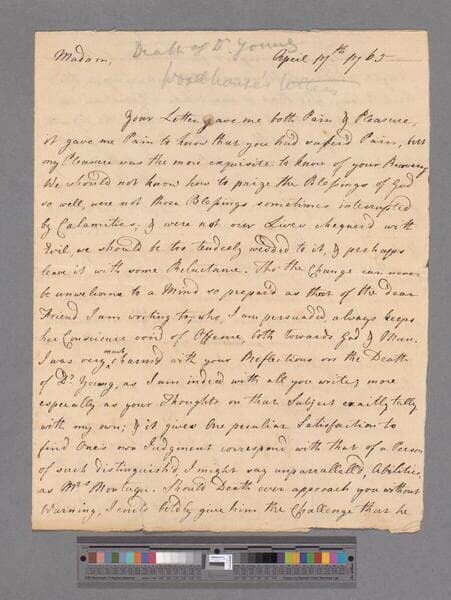 Death of Dr Young
Madam, April 17th 1765
Woodhouse's letters
Your Letter gave me both Pain & Pleasure,
it gave me Pain to know that you had suffer'd Pain, but
my Pleasure was the more exquisite to know of your Recovery
We should not know how to prize the Blessings of God
so well, were not those Blessings sometimes interrupted
by Calamities; & were not our Lives chequer'd with
Evil, we should be too tenderly wedded to it, & perhaps
leave it with some Reluctance. Tho' the Change can never
be unwelcome to a Mind so prepar'd as that of the dear
Friend I am writing to, who, I am persuaded, always keeps
her Conscience void of Offence, both towards God & Man.
I was very much charm'd with your Reflections on the Death
of Dr Young, as I am indeed with all you write; more
especially as your Thoughts on that Subject exactly tally
with my own; & it gives One peculiar Satisfaction to
find One's own Judgment correspond with that of a Person
of such distinguish'd, I might say unparrallel'd, Abilities,
as Mrs Montagu. Should Death ever approach you without
Warning, I could boldly give him the Challenge that he